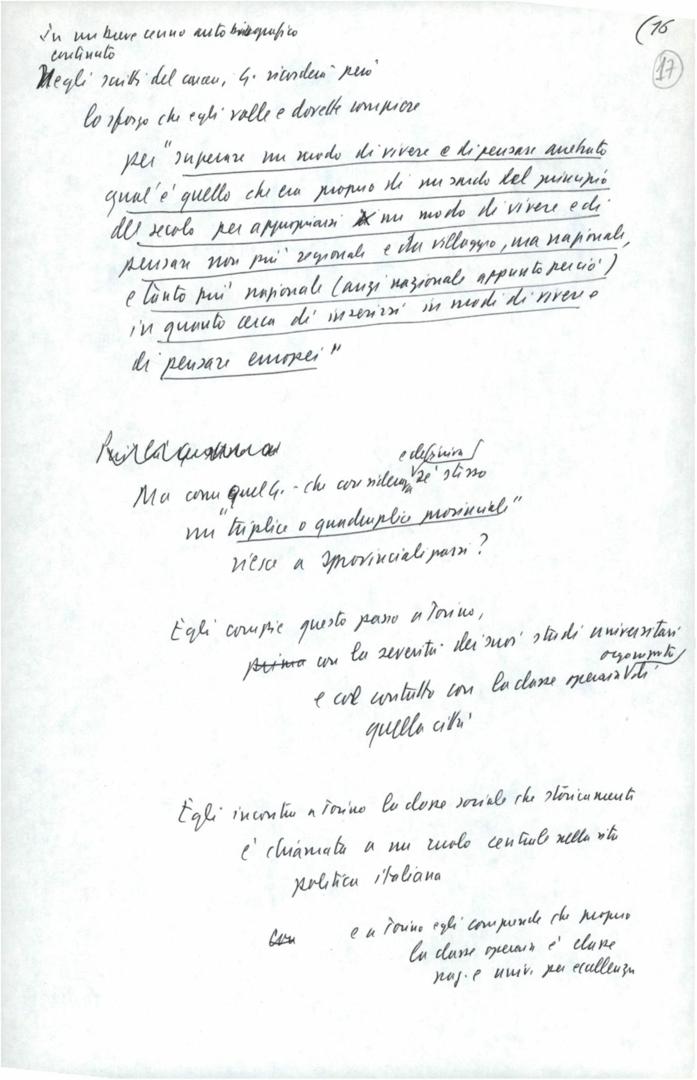 (16
17
In un breve cenno autobiografico
contenuto
Negli scritti del carcere, G. ricorderà però
lo sforzo che egli volle e dovette compiere
per "superare un modo di vivere e di pensare arretrato
qual'è quello che era proprio di un sardo del principio
del secolo per appropriarsi un modo di vivere e di
pensare non più regionale e da villaggio, ma nazionale,
e tanto più nazionale (anzi nazionale appunto perciò)
in quanto cerca di inserirsi in modi di vivere e
di pensare europei"
e definiva
Ma come quel G. - che considerava sé stesso
un "triplice o quadruplice provinciale"
riesce a sprovincializzarsi?
Egli compie questo passo a Torino,
prima con la severità dei suoi studi universitari
organizzata
e col contatto con la classe operaia di
quella città
Egli incontra a Torino la classe sociale che storicamente
è chiamata a un ruolo centrale nella vita
politica italiana
Con e a Torino egli comprende che proprio
la classe operaia è classe
naz. e univ. per eccellenza